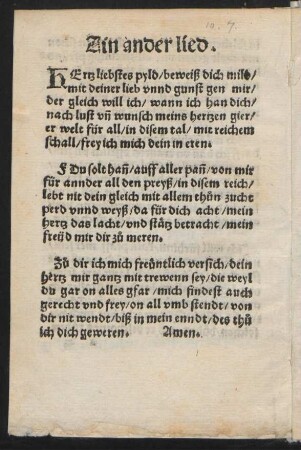 Ain ander lied.
HErtz liebstes pyld/beweiß dich milt/
mit deiner lieb vnnd gunst gen mir/
der gleich will ich/wann ich han dich/
nach lust vn̄ wunsch meins hertzen gier/
er welt für all/in disem tal/mit reichem
schall/frey ich mich dein in eren.
¶ Du solt han̄/auff aller pan̄/von mir
für annder all den preyß/in disem reich/
lebt nit dein gleich mit allem thůn zucht
perd vnnd weyß/da für dich acht/mein
hertz das lacht/vnd stätz betracht/mein
freüd mit dir zů meren.
Zů dir ich mich freüntlich versich/dein
hertz mir gantz mit trewenn sey/die weyl
du gar on alles gfar/mich findest auch
gerecht vnd frey/on all vmb stendt/von
dir nit wendt/biß in mein enndt/des thů
ich dich geweren. Amen.